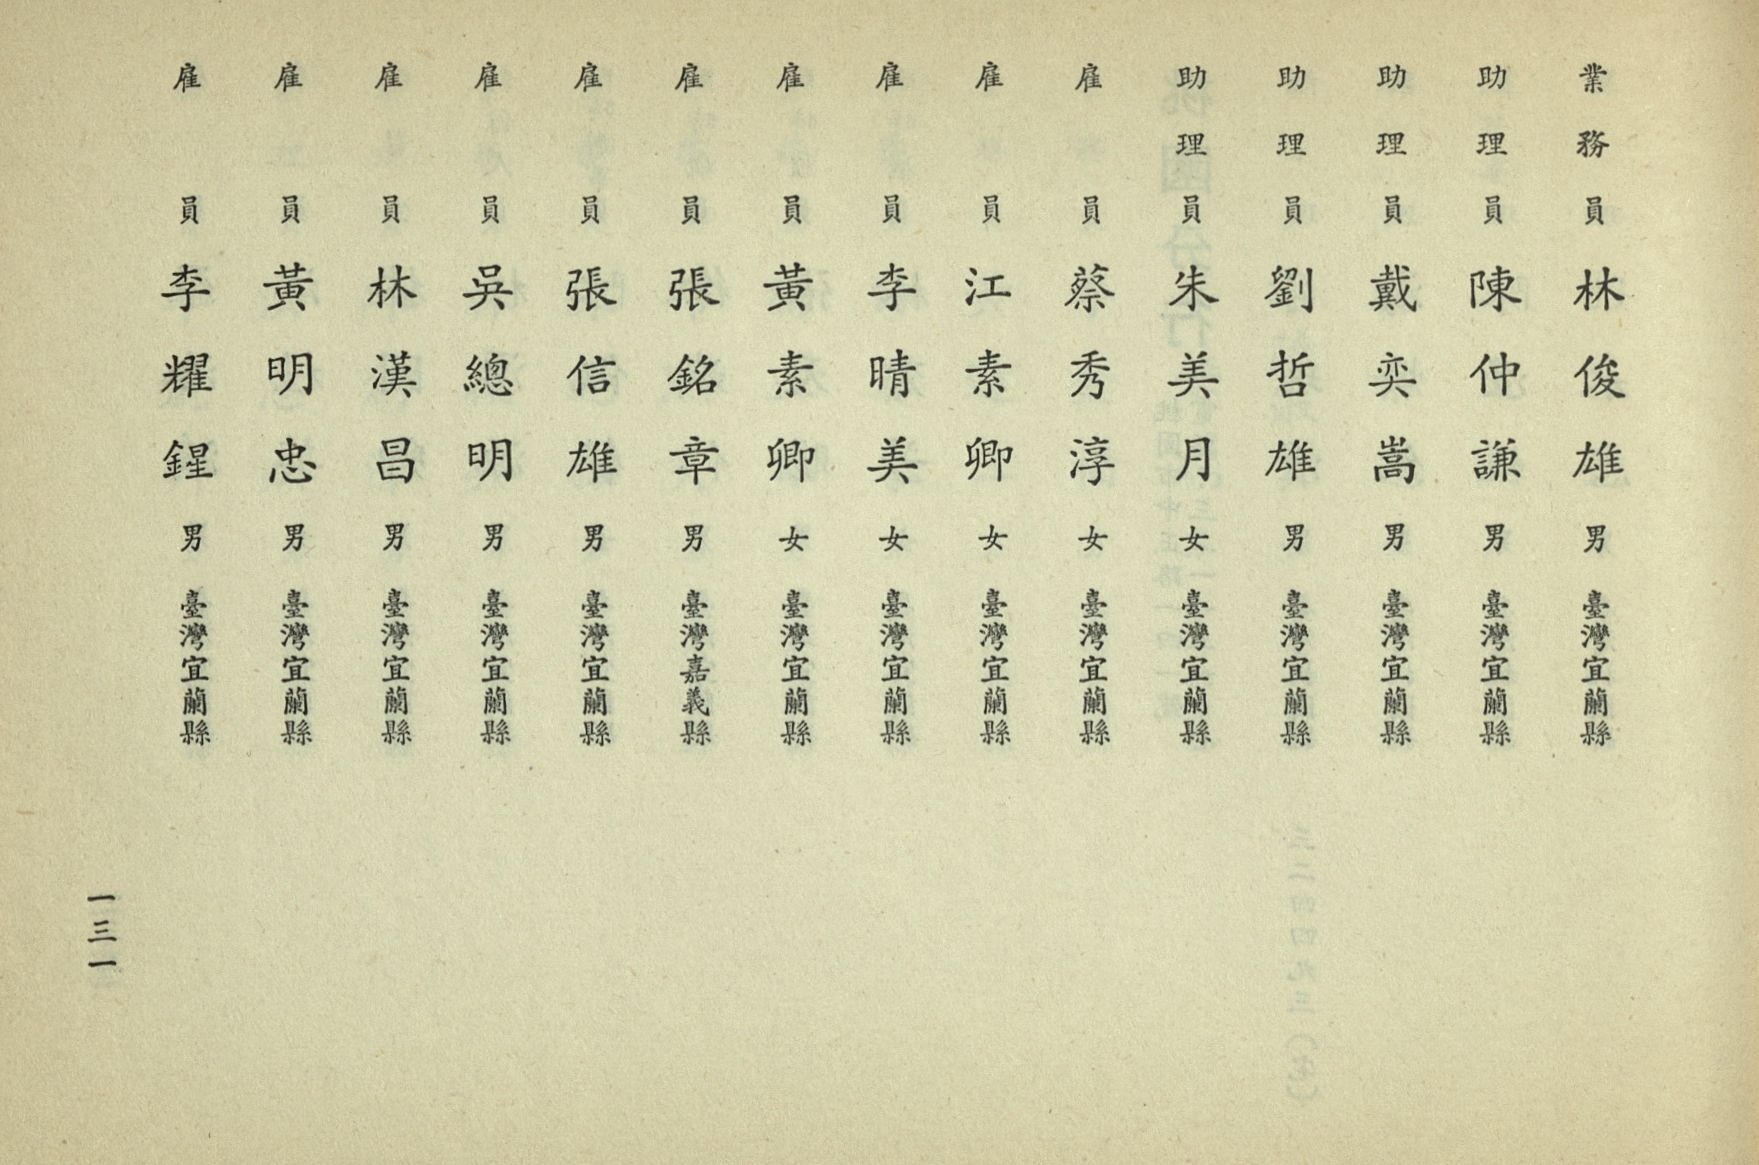 業務員林俊雄男臺灣宜蘭縣
助理員陳仲謙男臺灣宜蘭縣
助理員戴奕嵩男臺灣宜蘭縣
助理員劉哲雄男臺灣宜蘭縣
助理員朱美月女臺灣宜蘭縣
雇員蔡秀淳女臺灣宜蘭縣
雇員江素卿女臺灣宜蘭縣
雇員李晴美女臺灣宜蘭縣
雇員黃素卿女臺灣宜蘭縣
雇員張銘章男臺灣嘉義縣
雇員張信雄男臺灣宜蘭縣
雇員吳總明男臺灣宜蘭縣
雇員林漢昌男臺灣宜蘭縣
雇員黃明忠男臺灣宜蘭縣
雇員李耀鍟男臺灣宜蘭縣
一三一